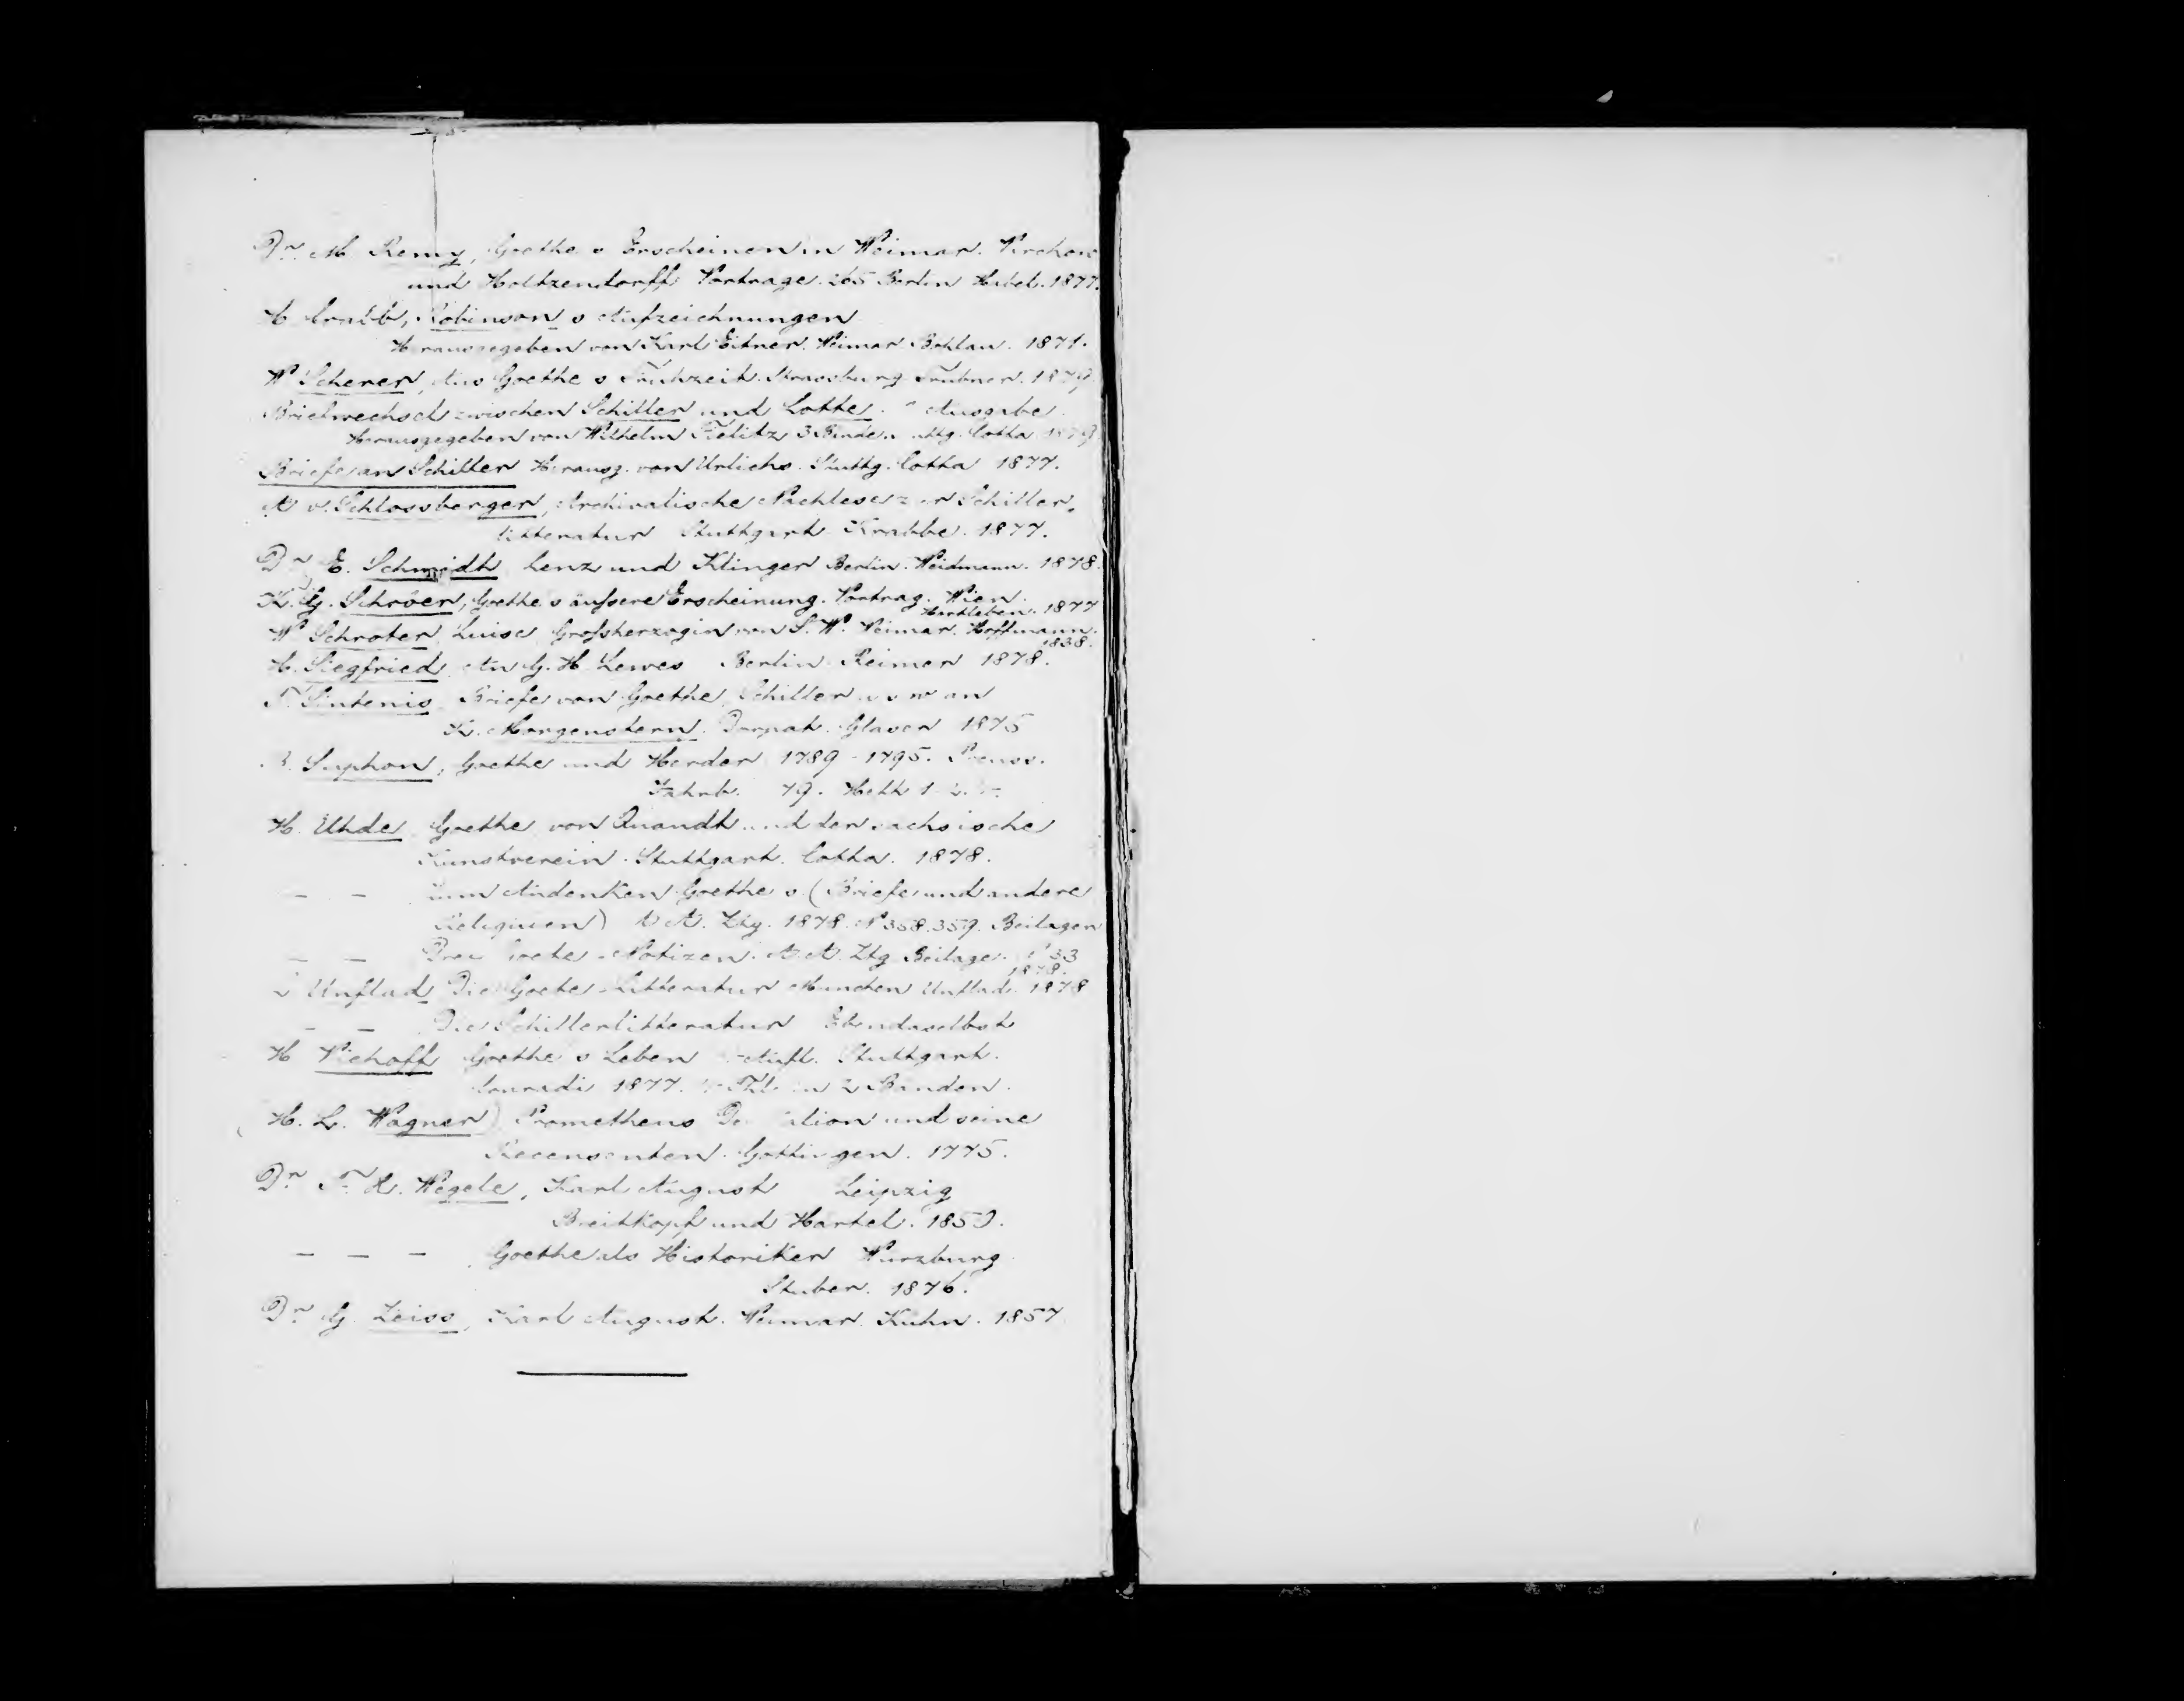 Dr. M. Remy, Goethe's Erscheinen in Weimar. Virchow
und Holtzendorff Vortrage. 265 Berlin Habel. 1877.
H. Crabb, Robinson's Aufzeichnungen
Herausgegeben von Karl Eitner. Weimar Bohlau. 1871.
W Scherer, Aus Goethe's Fruhzeit. Strassburg Trubner. 1879.
Briefwechsel zwischen Schiller und Lotte. Ausgabe.
Herausgegeben von Wilhelm Fielitz 3 Bande. Cotta 1879
Briefe an Schiller Herausg. von Urlichs. Stuttg. Cotta 1877.
A v. Schlossberger, Archivalische Nachlese zur Schiller-
litteratur Stuttgart Krabbe. 1877.
Dr E. Schmidt Lenz und Klinger Berlin. Weidmann. 1878.
K. G. Schröer, Goethe's äußere Erscheinung. Vortrag. Wien.
Hartleben. 1877
W Schroter Luise Großherzogin von S. W. Weimar. Hoffmann.
1838.
H. Siegfried An G. H. Lewes Berlin Reimer 1878.
F. Sintenis Briefe von Goethe, Schiller u s w an
K. Morgenstern. Dorpat. Glaser 1875
B. Suphan, Goethe und Herder 1789 - 1795. Preuss.
Jahrb. 79. Heft 1
H. Uhde Goethe von Quandt und der sachsische
Kunstverein. Stuttgart. Cotta. 1878.
— — Zum Andenken Goethe's (Briefe und andere
Reliquien) A A. Ztg. 1878. No 358. 359. Beilagen
— — Drei Goete-Notizen. A. A. Ztg Beilage. 33
1878.
Unflad Die Goete-Litteratur Munchen Unflad. 1878
— — Die Schillerlitteratur Ebendaselbst
H Viehoff Goethe's Leben Aufl. Stuttgart.
Conradi 1877. 4 Thl. in 2 Banden.
H. L. Wagner) Prometheus und seine
Recensenten. Gottingen. 1775.
Dr. F. X. Wegele, Karl August Leipzig
Breitkopf und Hartel. 1850.
— — — Goethe als Historiker Wurzburg
Stuber. 1876.
Dr. G. Zeiss, Karl August. Weimar. Kuhn. 1857